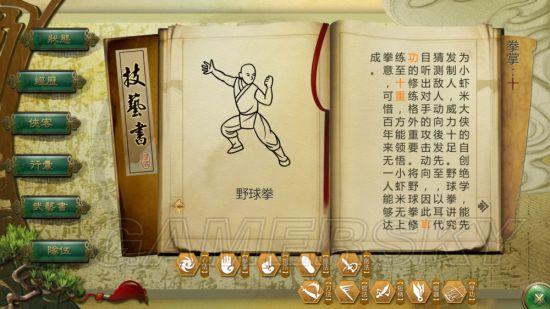 狀態
經歷
俠客
行囊
武藝書
隊伍
技藝書
野球拳
拳掌：十
为小虾米大侠的自创绝学，能先
发制人，威力十足。野球拳讲究
猜测敌人动向後发先至，以耳代
目听出对手的攻击动向，因此聽
功的修练格外重要。将野球拳修
练至十重，方能领悟小虾米无上
拳意，可惜百年来无一人能够达
成。
GAMERSKY